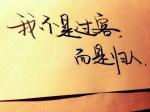 我不是过客，
而是归人.